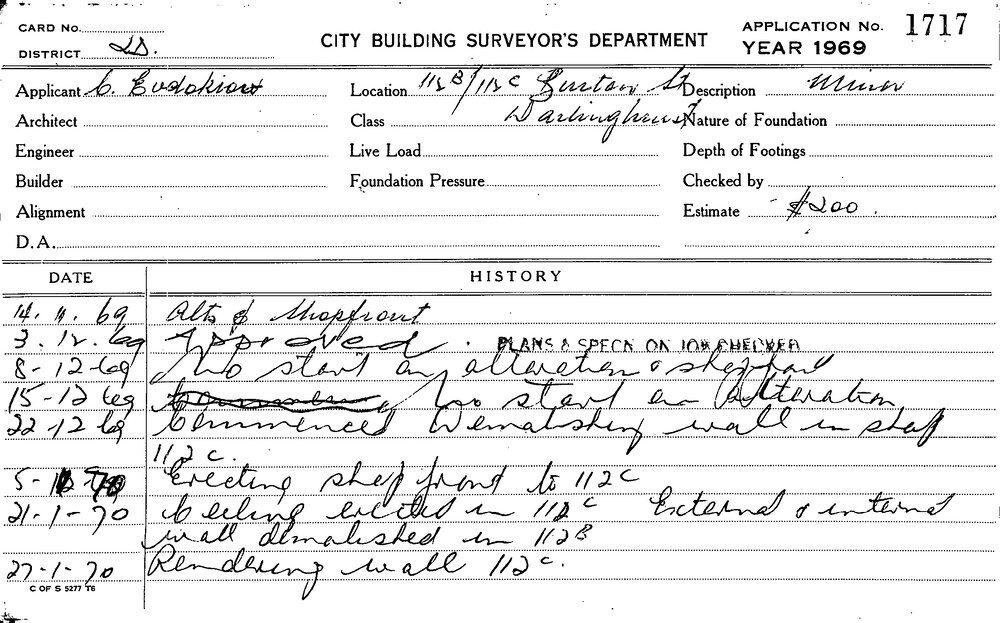 CARD No.
DISTRICT 2D.
CITY BUILDING SURVEYOR'S DEPARTMENT
APPLICATION No. 1717
YEAR 1969
Applicant C. Evdokiou Location 112B/112C Burton St Description Minor
Architect Class Darlinghurst Nature of Foundation
Engineer Live Load Depth of Footings
Builder Foundation Pressure Checked by
Alignment Estimate $200.
D.A.
DATE HISTORY
14. 11. 69 Alts & Shopfront
3. 12. 69 Approved. PLANS & SPECN ON JOB CHECKED
8-12-69 No start on alteration & shopfront
15-12 69 No start on Alteration
22-12 69 Commenced Demolishing wall in shop
112 C.
5-1-70 Erecting shop front to 112 C
21-1-70 Ceiling erected in 112 C External & internal
wall demolished in 112 B
27-1-70 Rendering wall 112 C.
C OF S 5277 T6